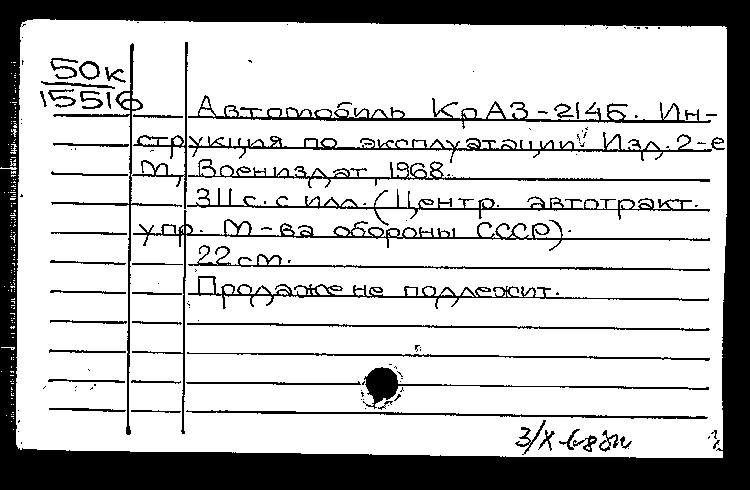 50к
15516
Автомобиль КрАЗ-214Б. Ин-
струкция по эксплуатации. Изд. 2-е
М., Воениздат, 1968.
311 с. с илл. (Центр. автотракт.
упр. М-ва обороны СССР).
22 см.
Продаже не подлежит.
3/X-68